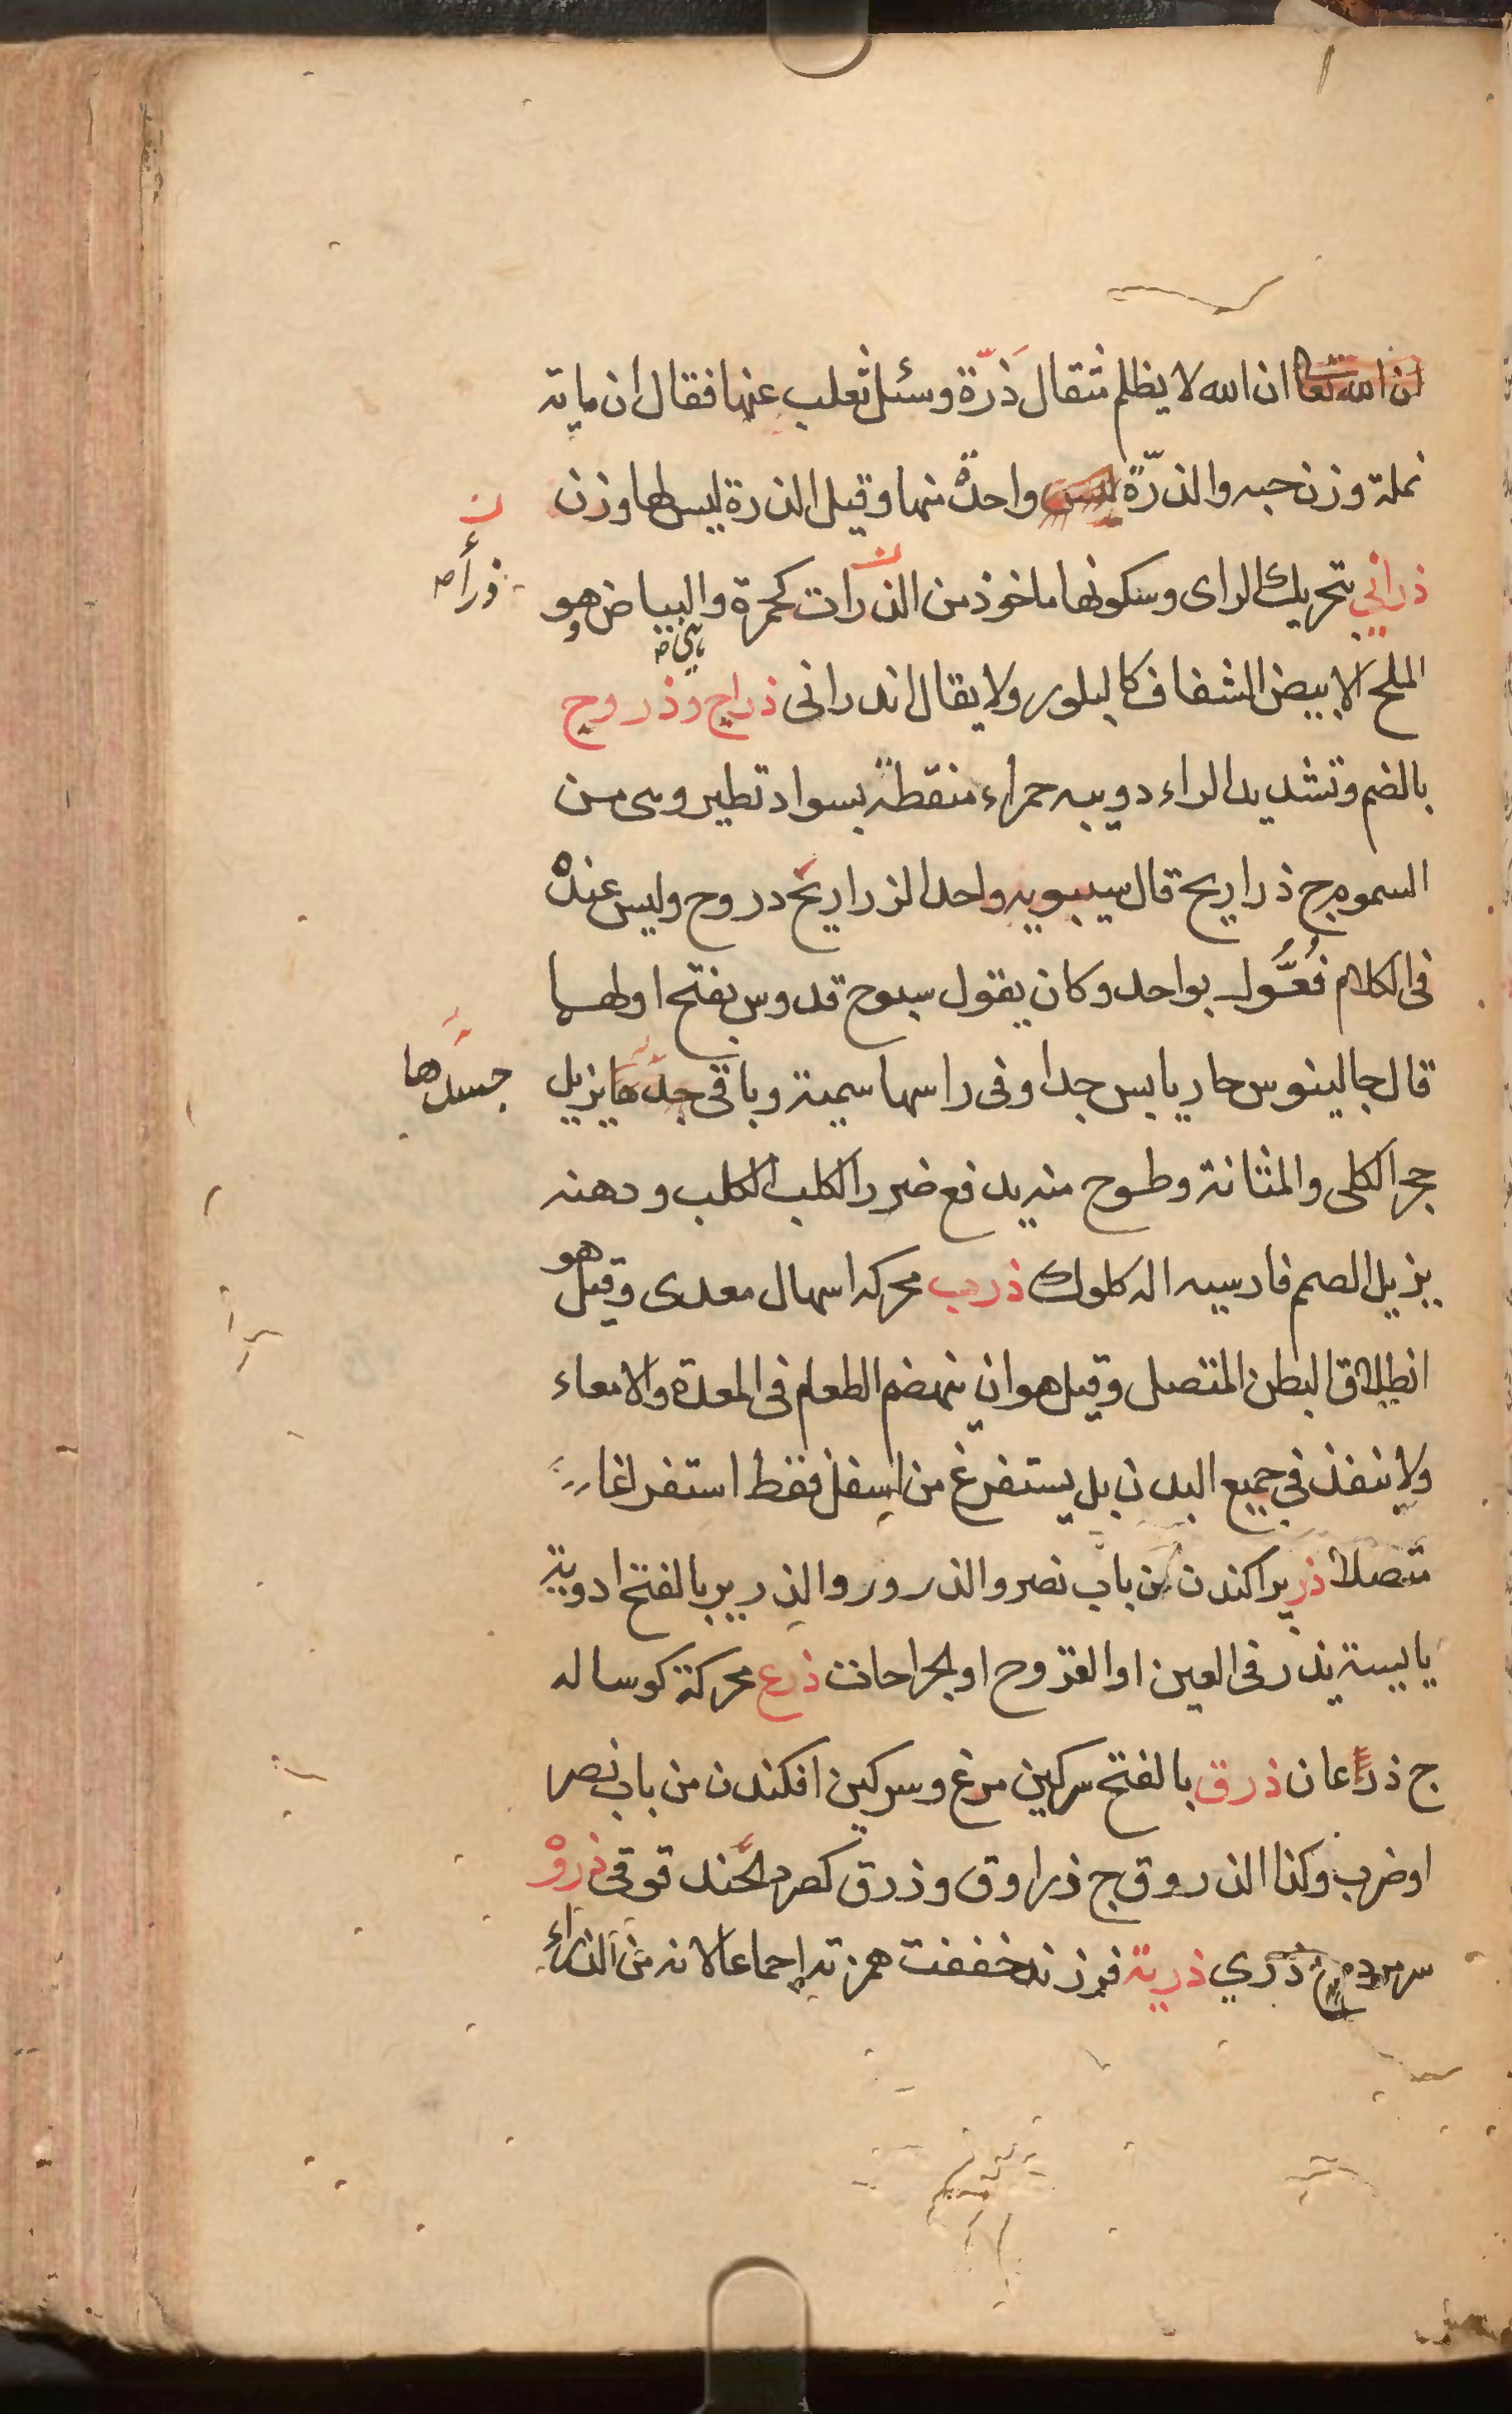 ان الله تعا ان الله لا يظلم مثقال ذَرّة وسئل ثعلب عنها فقال ان ماية
نملة وزن حبه والذرّة ليس واحدة منها وقيل الذرة ليس لها وزن
ذراني بتحريك الراى وسكونها ماخوذ من الذرات كحمرة والبياض هو
ذرأه
الملح الابيض الشفاف كالبلور ولا يقال اندرانى ذراح وذروح
بالضم وتشديد الراء دويبه حمراء منقطة بسواد تطير وهى من
السموم ج ذراريح قال سيبويه واحد الزراريح دروح وليس عنده
فى الكلام فُعُّول بواحد وكان يقول سبوح قدوس بفتح اولهما
قال جالينوس حار يابس جدا وفى راسها سمية وباقى جدها يزيل
جسدها
حجر الكلى والمثانة وطسوح منه يدفع ضرر الكلب الكلب ودهنه
يزيل الصمم فارسيه اله كلوك ذرب محركه اسهال معدى وقيل هو
انطلاق البطن المتصل وقيل هو ان ينهضم الطعام فى المعدة والامعاء
ولا ينفذ في جميع البدن بل يستفرغ من اسفل فقط استفراغا
متصلا ذر پراكندن من باب نصر والذرور والذرير بالفتح ادوية
يابسة يذر فى العين او القروح او الجراحات ذرع محركة كوساله
ج ذرعان ذرق بالفتح سركين مرغ وسركين افكندن من باب نصر
او ضرب وكذا الذروق ج ذراوق وذرق كصرد الحندقوقى ذروة
ذري ذرية فرزند خففت همزته اجماعا لانه من الذراء